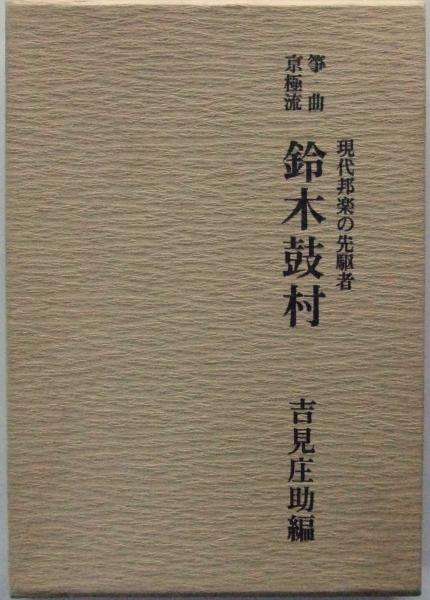 現代邦楽の先駆者
箏曲
京極流
鈴木鼓村
吉見庄助編